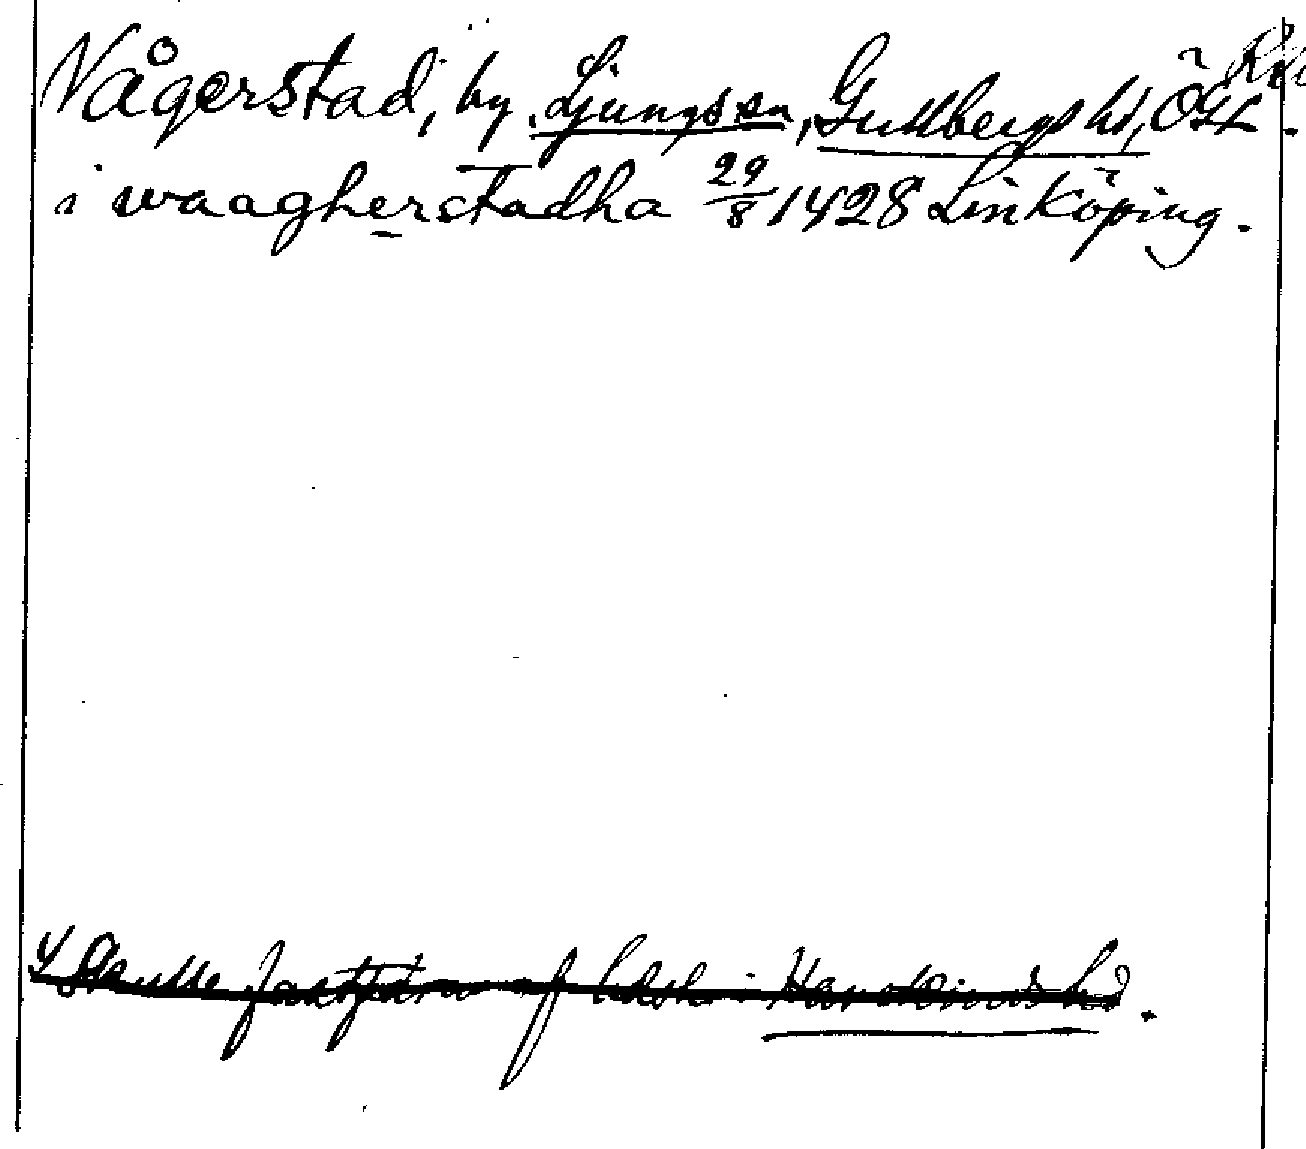 Vågerstad, by, Ljungs sn, Gullbergs hd, Ögtl.
i waagherstadha 29/8 1428 Linköping.
Skulle fastfara af i Hanekinds hd.